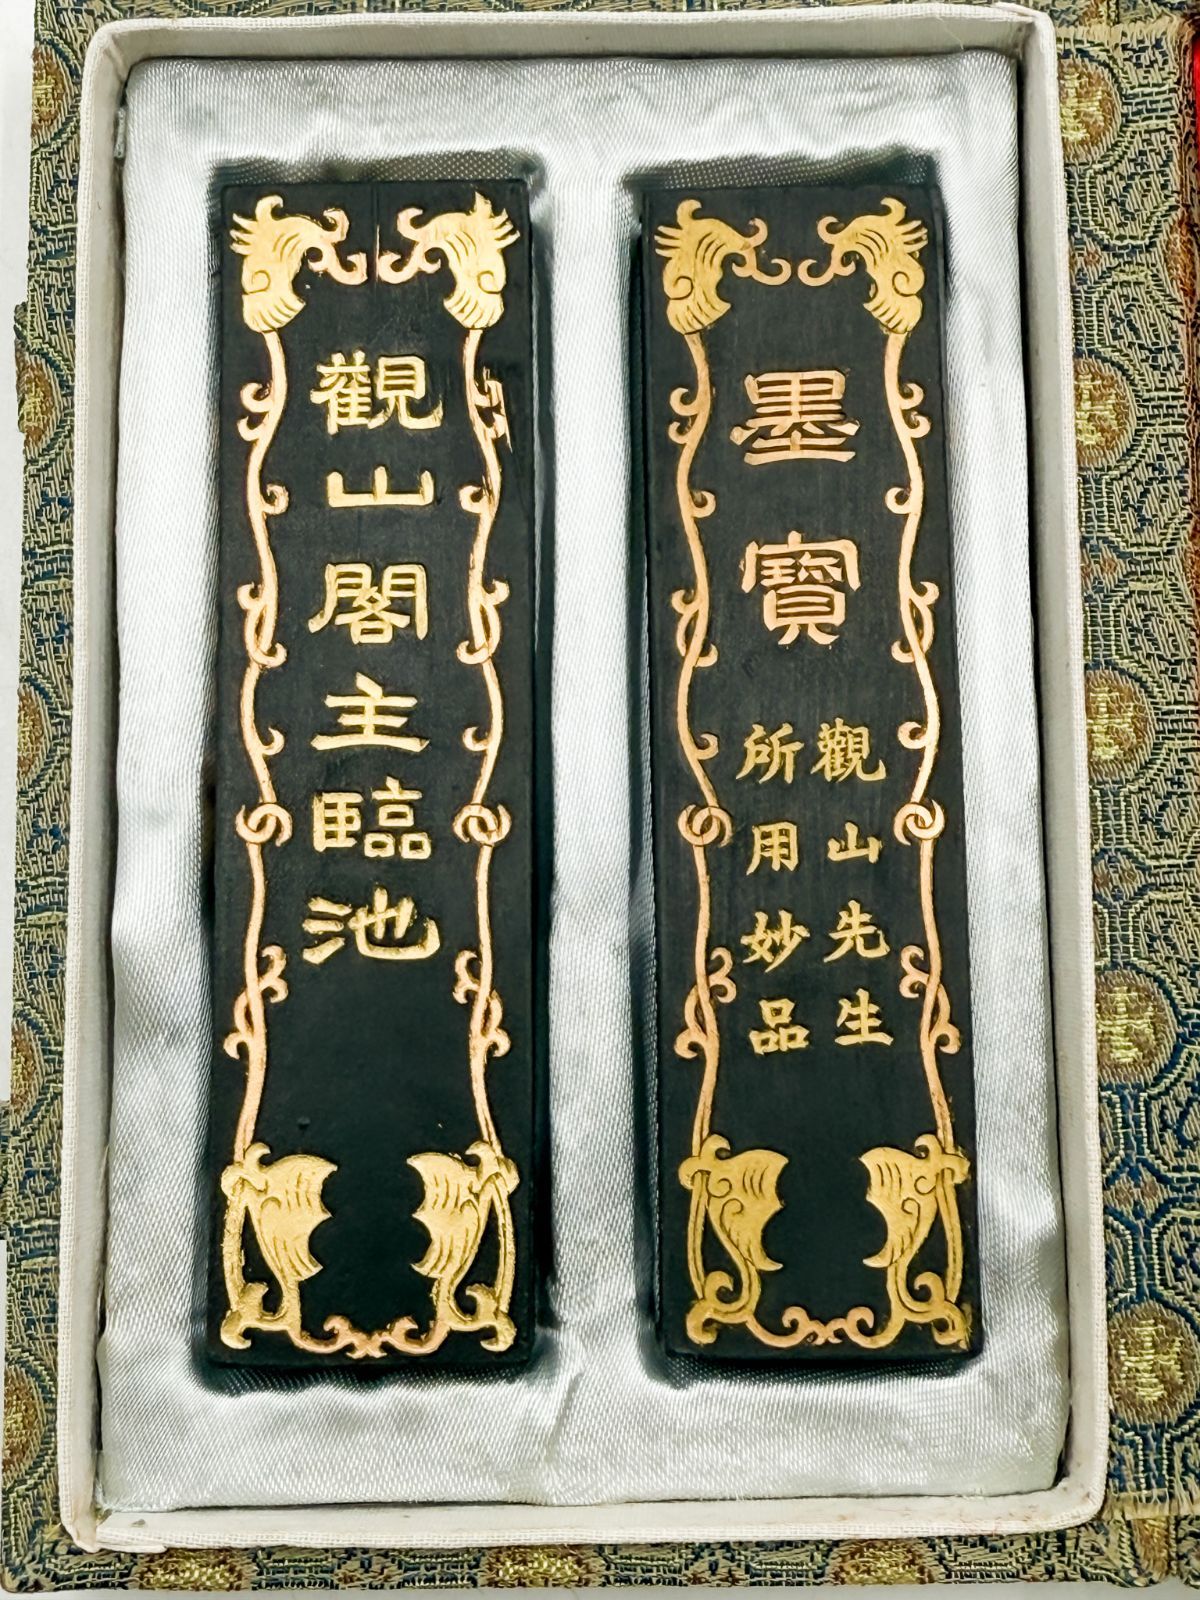 觀山閣主臨池
墨寶
觀山先生
所用妙品